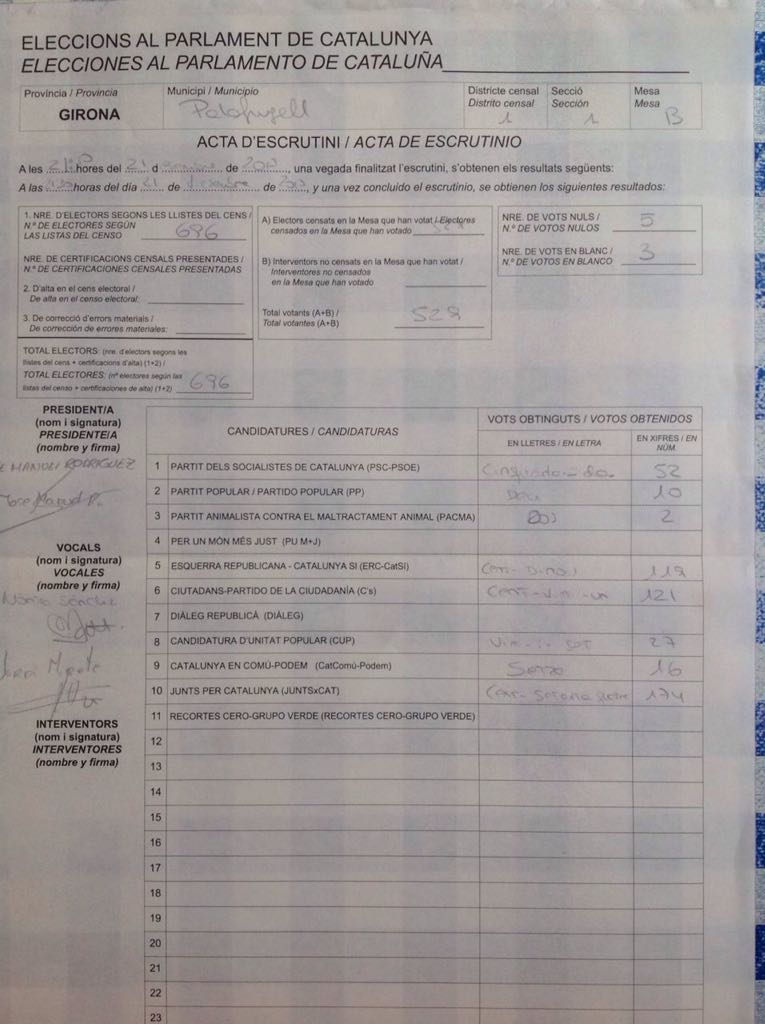 ELECCIONS AL PARLAMENT DE CATALUNYA
ELECCIONES AL PARLAMENTO DE CATALUÑA
Província / Provincia
GIRONA
Municipi / Municipio
Palafrugell
Districte censal
Distrito censal
1
Secció
Sección
1
Mesa
Mesa
B
ACTA D'ESCRUTINI / ACTA DE ESCRUTINIO
A les hores del 21 d de 2017, una vegada finalitzat l'escrutini, s'obtenen els resultats següents:
A las horas del día 21 de de, y una vez concluido el escrutinio, se obtienen los siguientes resultados:
1. NRE. D'ELECTORS SEGONS LES LLISTES DEL CENS /
N.º DE ELECTORES SEGÚN
LAS LISTAS DEL CENSO 696
NRE. DE CERTIFICACIONS CENSALS PRESENTADES /
N.º DE CERTIFICACIONES CENSALES PRESENTADAS
2. D'alta en el cens electoral /
De alta en el censo electoral:
3. De correcció d'errors materials /
De corrección de errores materiales:
TOTAL ELECTORS: (nre. d'electors segons les
llistes del cens + certificacions d'alta) (1+2) /
TOTAL ELECTORES: (nº electores según las
listas del censo + certificaciones de alta) (1+2) 696
A) Electors censats en la Mesa que han votat / Electores
censados en la Mesa que han votado 528
B) Interventors no censats en la Mesa que han votat /
Interventores no censados
en la Mesa que han votado
Total votants (A+B) /
Total votantes (A+B) 528
NRE. DE VOTS NULS /
N.º DE VOTOS NULOS 5
NRE. DE VOTS EN BLANC /
N.º DE VOTOS EN BLANCO 3
PRESIDENT/A
(nom i signatura)
PRESIDENTE/A
(nombre y firma)
MANUEL RODRIGUEZ
VOCALS
(nom i signatura)
VOCALES
(nombre y firma)
Sánchez
INTERVENTORS
(nom i signatura)
INTERVENTORES
(nombre y firma)
CANDIDATURES / CANDIDATURAS
VOTS OBTINGUTS / VOTOS OBTENIDOS
EN LLETRES / EN LETRA
EN XIFRES / EN
NÚM.
1 PARTIT DELS SOCIALISTES DE CATALUNYA (PSC-PSOE) 52
2 PARTIT POPULAR / PARTIDO POPULAR (PP) Deu 10
3 PARTIT ANIMALISTA CONTRA EL MALTRACTAMENT ANIMAL (PACMA) Dos 2
4 PER UN MÓN MÉS JUST (PU M+J)
5 ESQUERRA REPUBLICANA - CATALUNYA SI (ERC-CatSí)
6 CIUTADANS-PARTIDO DE LA CIUDADANÍA (C's) 121
7 DIÀLEG REPUBLICÀ (DIÀLEG)
8 CANDIDATURA D'UNITAT POPULAR (CUP) 27
9 CATALUNYA EN COMÚ-PODEM (CatComú-Podem) 16
10 JUNTS PER CATALUNYA (JUNTSxCAT) 174
11 RECORTES CERO-GRUPO VERDE (RECORTES CERO-GRUPO VERDE)
12
13
14
15
16
17
18
19
20
21
22
23